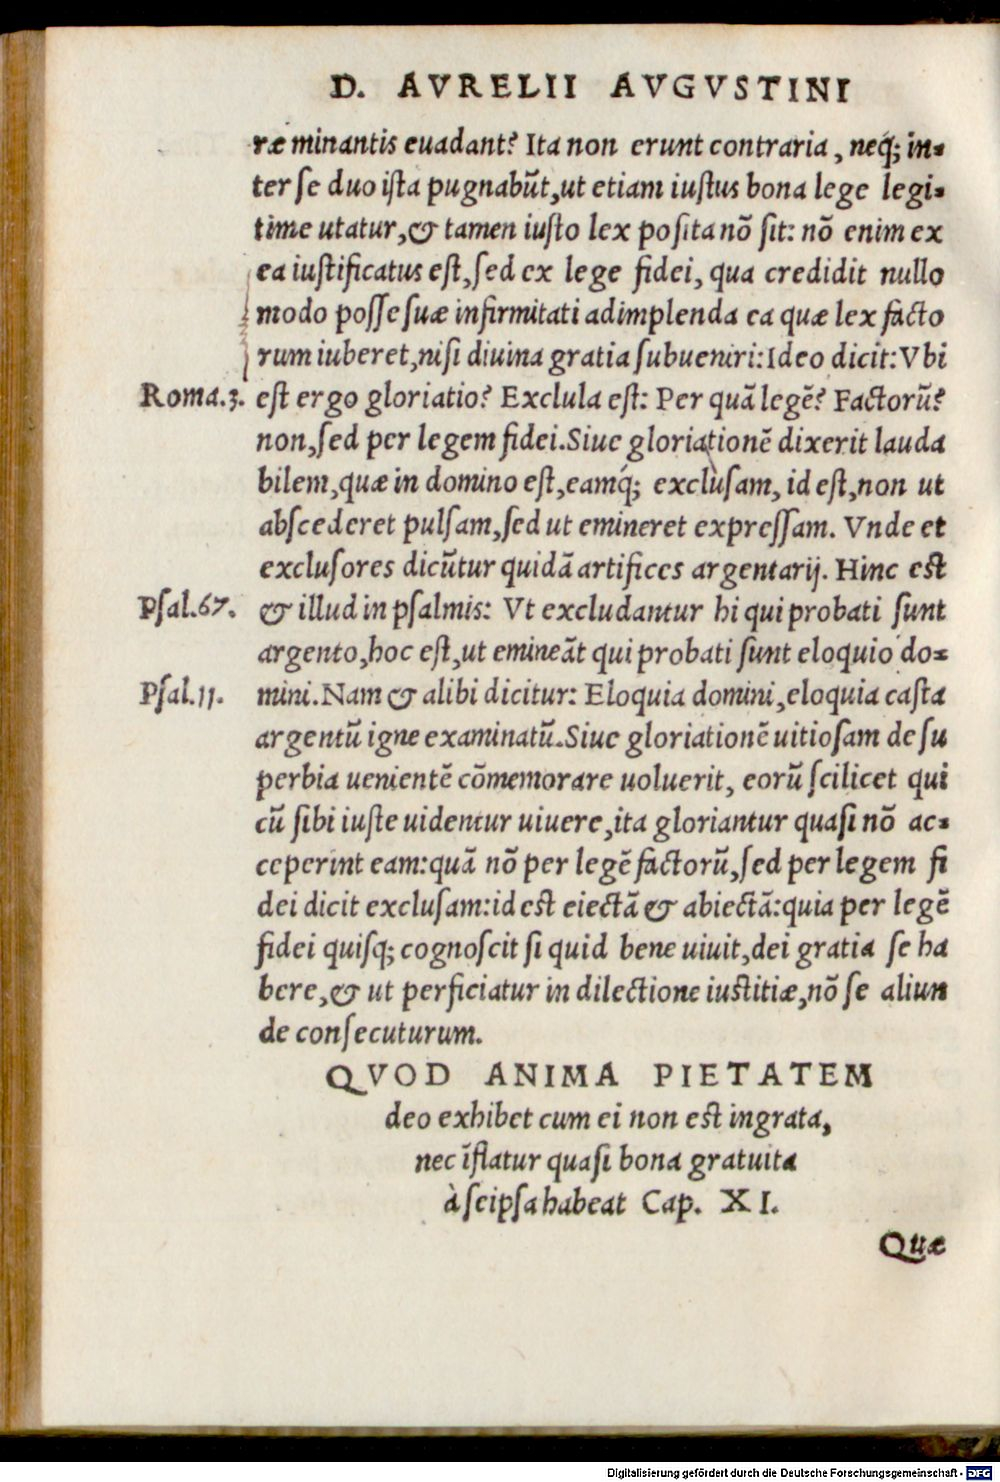 D. AVRELII AVGVSTINI
ræ minantis euadant? Ita non erunt contraria, neq; in-
ter se duo ista pugnabũt, ut etiam iustus bona lege legi-
time utatur, & tamen iusto lex posita nõ sit: nõ enim ex
ea iustificatus est, sed ex lege fidei, qua credidit nullo
modo posse suæ infirmitati adimplenda ea quæ lex facto
rum iuberet, nisi diuina gratia subueniri: Ideo dicit: Vbi
Roma.3. est ergo gloriatio? Exclula est: Per quã legẽ? Factorũ?
non, sed per legem fidei. Siue gloriationẽ dixerit lauda
bilem, quæ in domino est, eamq́; exclusam, id est, non ut
abscederet pulsam, sed ut emineret expressam. Vnde et
exclusores dicũtur quidã artifices argentarij. Hinc est
Psal.67. & illud in psalmis: Vt excludantur hi qui probati sunt
argento, hoc est, ut emineãt qui probati sunt eloquio do-
Psal.11. mini. Nam & alibi dicitur: Eloquia domini, eloquia casta
argentũ igne examinatũ. Siue gloriationẽ uitiosam de su
perbia uenientẽ cõmemorare uoluerit, eorũ scilicet qui
cũ sibi iuste uidentur uiuere, ita gloriantur quasi nõ ac-
ceperint eam: quã nõ per legẽ factorũ, sed per legem fi
dei dicit exclusam: id est eiectã & abiectã: quia per legẽ
fidei quisq; cognoscit si quid bene uiuit, dei gratia se ha
bere, & ut perficiatur in dilectione iustitiæ, nõ se aliun
de consecuturum.
QVOD ANIMA PIETATEM
deo exhibet cum ei non est ingrata,
nec ĩflatur quasi bona gratuita
à seipsa habeat Cap. XI.
Quæ
Digitalisierung gefördert durch die Deutsche Forschungsgemeinschaft - DFG